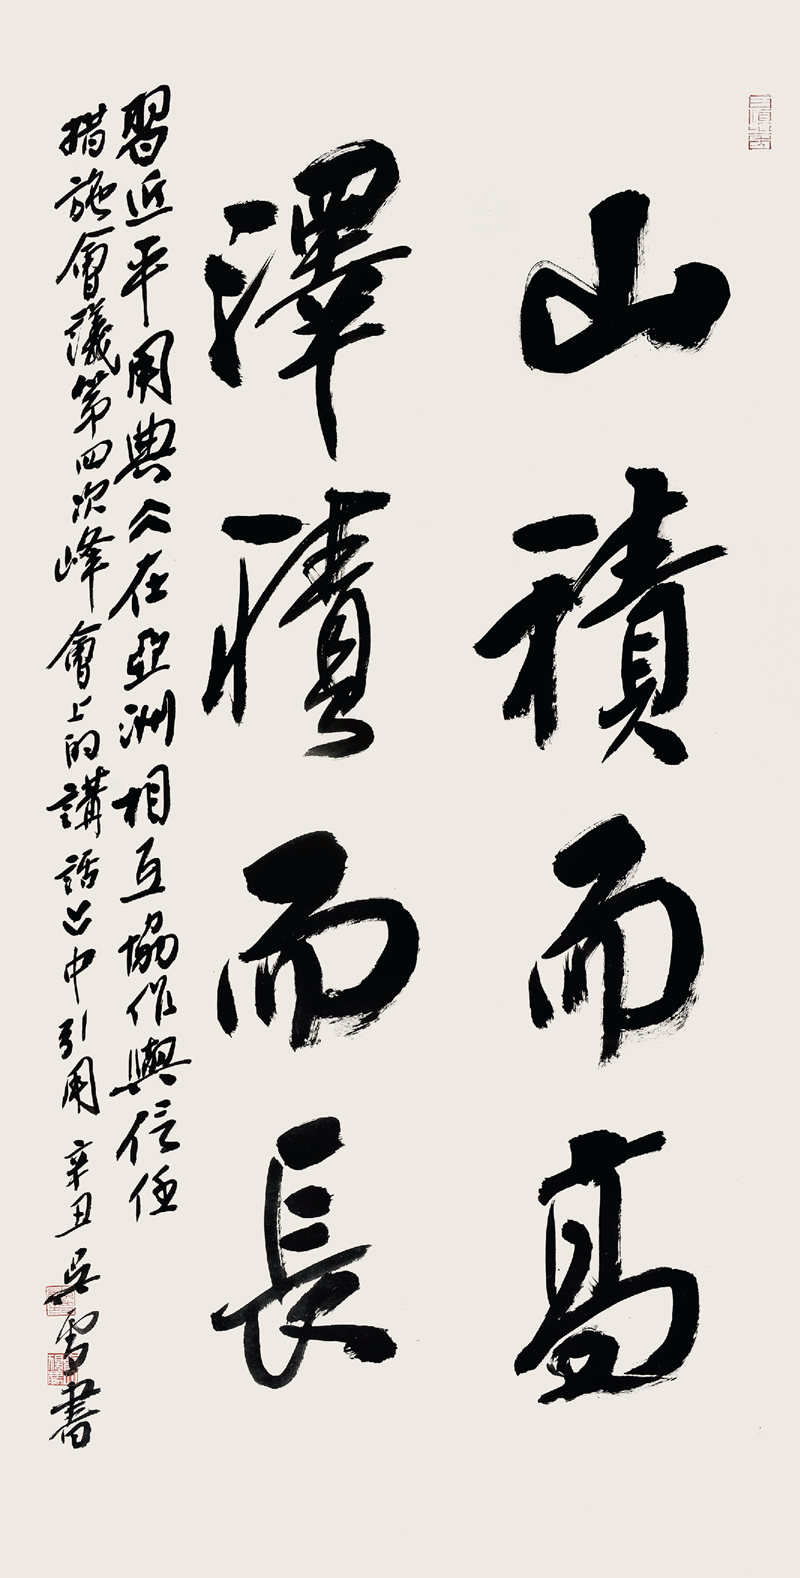 山積而高
澤積而長
習近平用典《在亞洲相互協作與信任
措施會議第四次峰會上的講話》中引用 辛丑 吳雪書